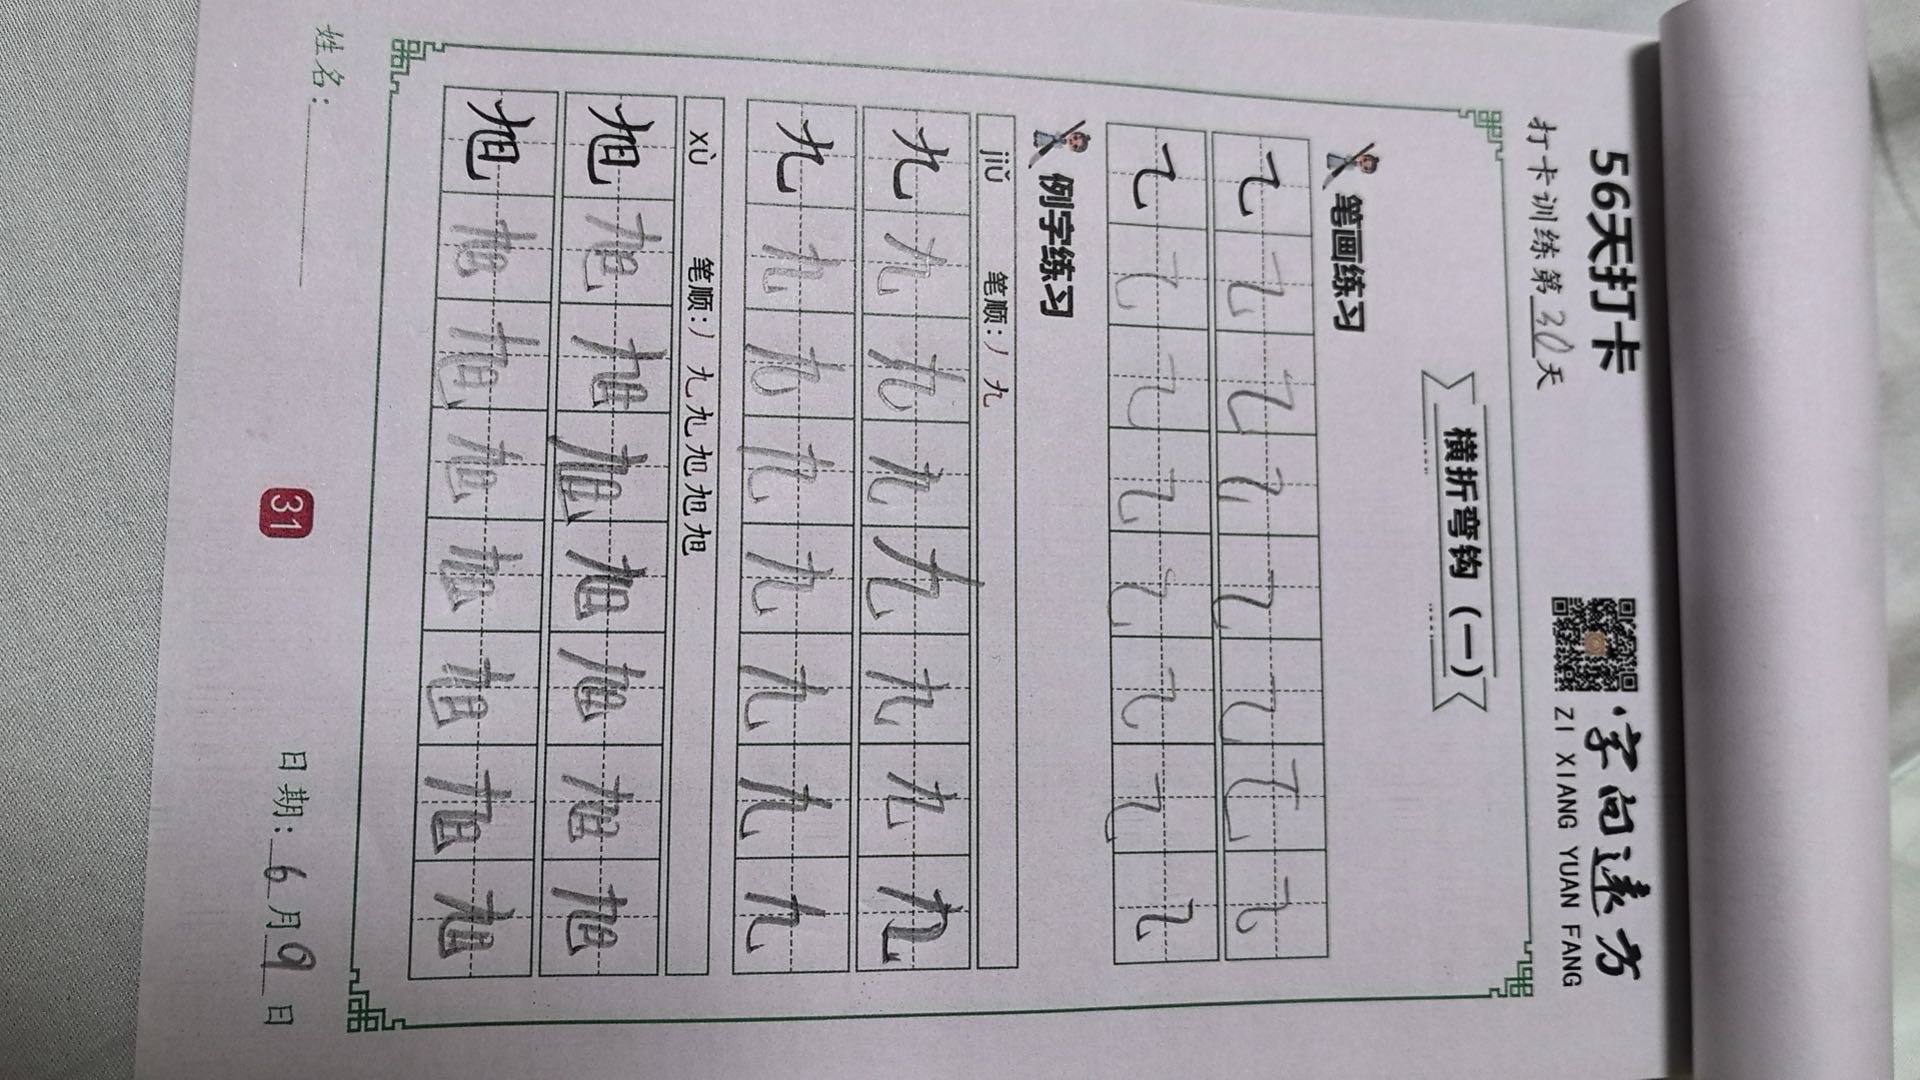 56天打卡
字向远方
打卡训练第30天
ZI XIANG YUAN FANG
横折弯钩（一）
笔画练习
㇈ ㇈ ㇈ ㇈ ㇈ ㇈ ㇈ ㇈
㇈ ㇈ ㇈ ㇈ ㇈ ㇈ ㇈ ㇈
例字练习
jiǔ 笔顺：丿 九
九 九 九 九 九 九 九 九
九 九 九 九 九 九 九 九
xù 笔顺：丿 九 九 旭 旭 旭
旭 旭 旭 旭 旭 旭 旭 旭
旭 旭 旭 旭 旭 旭 旭 旭
姓名：
31
日期：6月9日